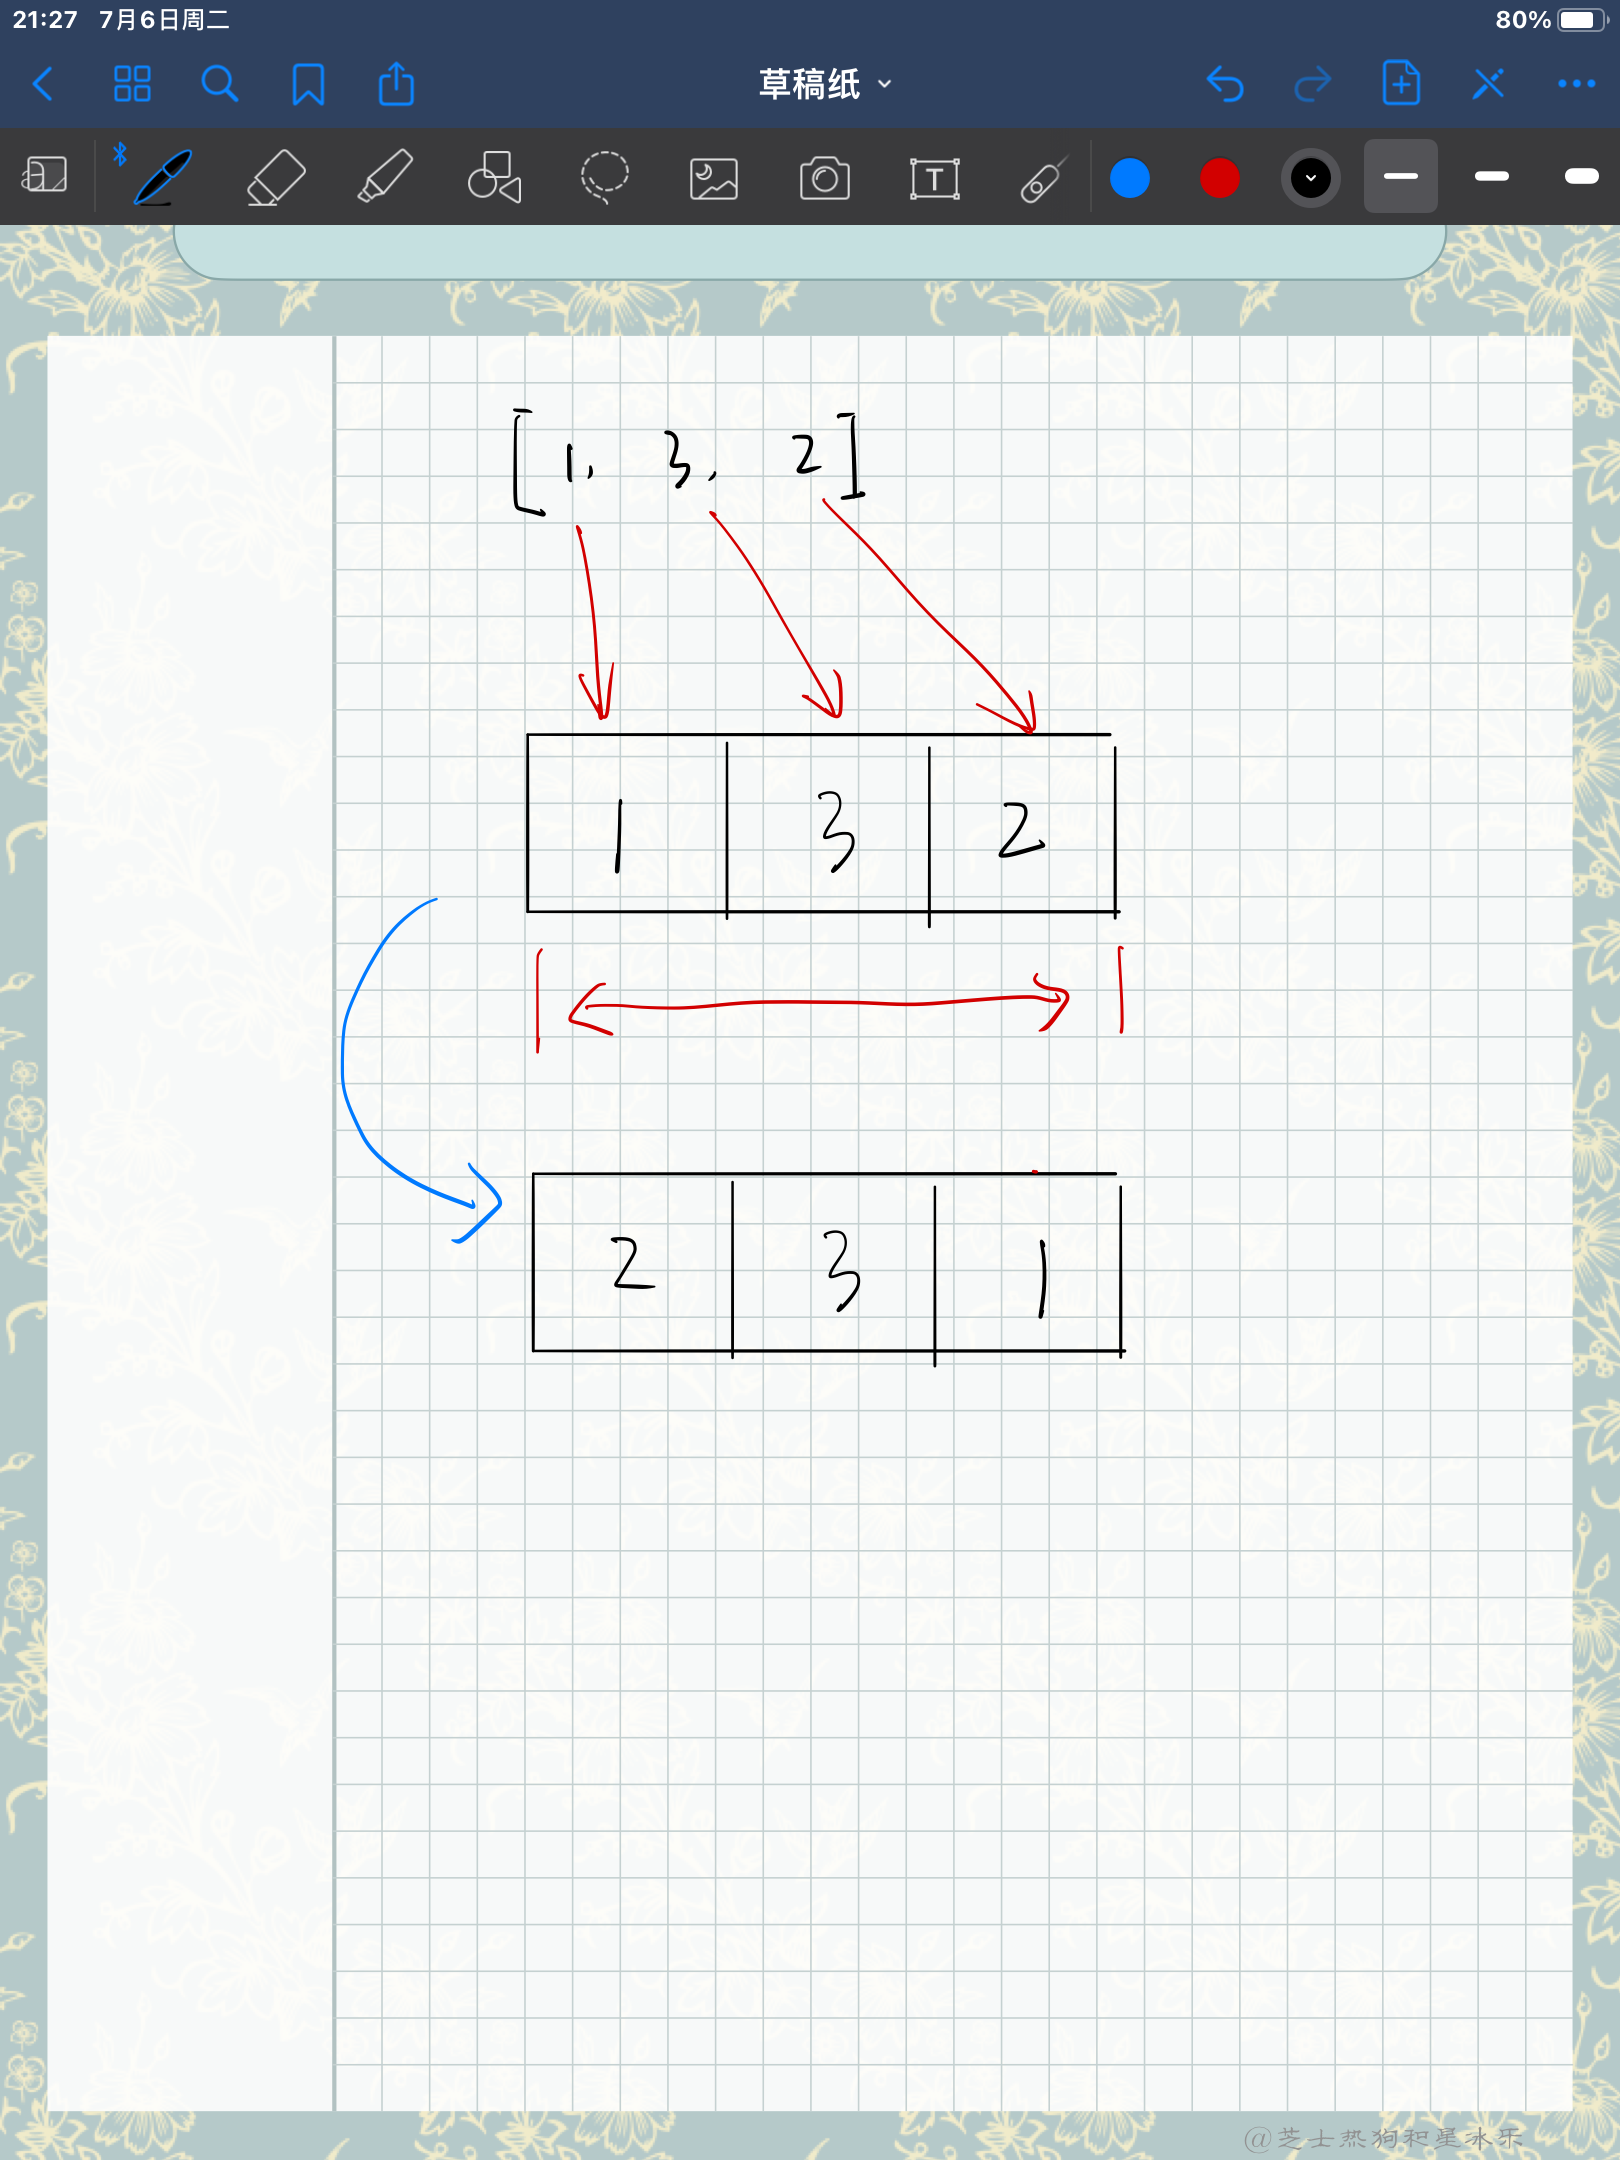 21:27 7月6日周二 80%
草稿纸
T
[1, 3, 2]
1 3 2
2 3 1
@芝士热狗和星冰乐